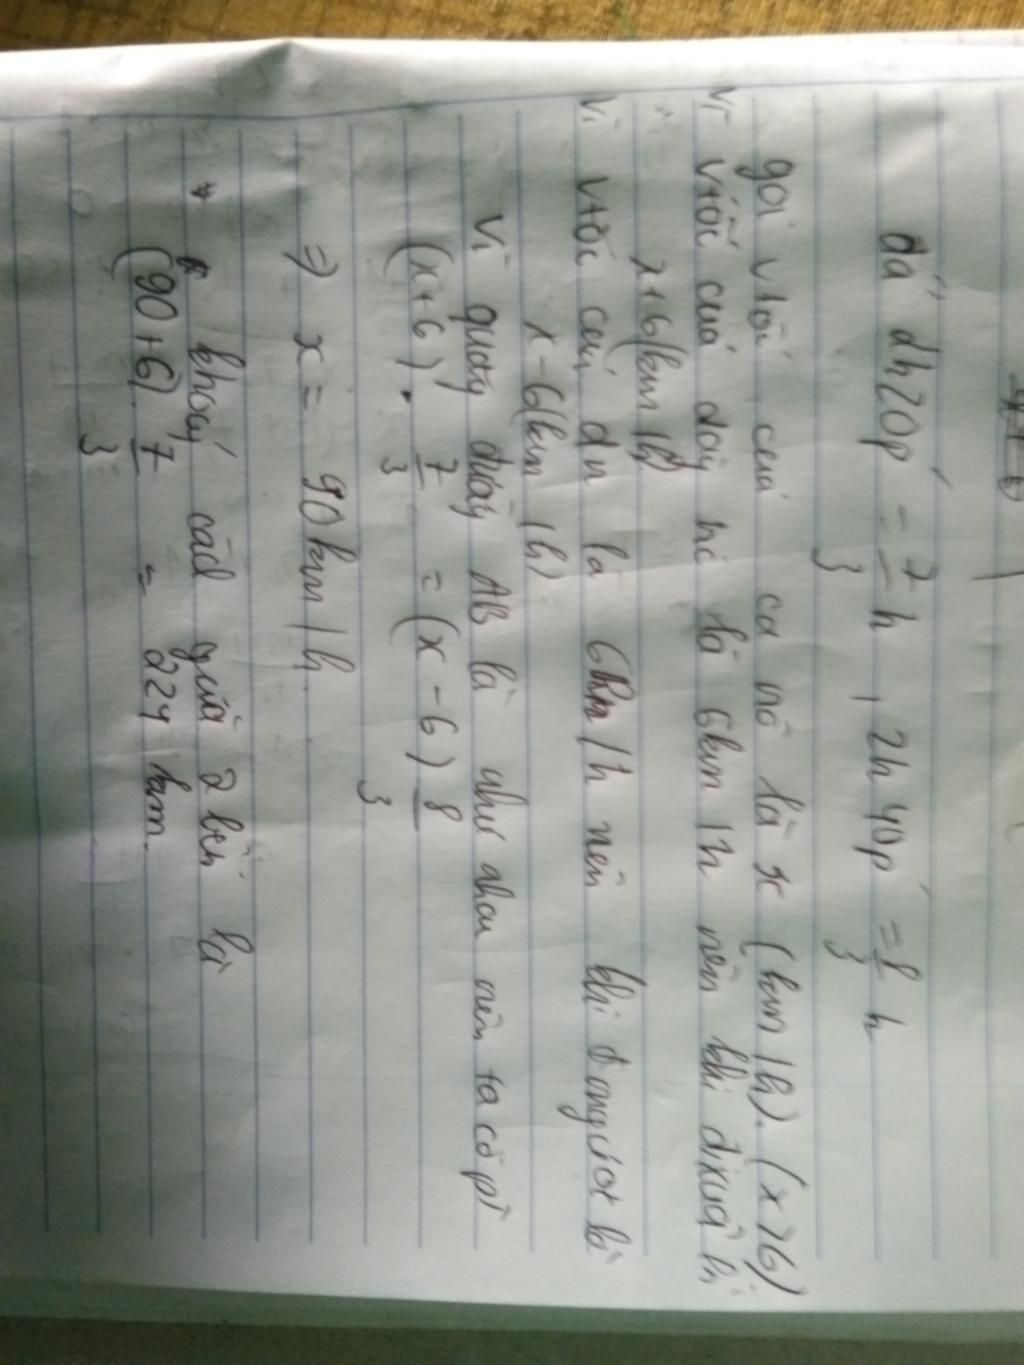 đổi 2h20p' = 7/3 h, 2h40p' = 8/3 h
gọi vtốc của ca nô là x (km/h). (x>6)
Vì vtốc của dòng nc là 6km/h nên khi đi xuôi là
x+6(km/h)
Vì vtốc của dn là 6km/h nên khi đ ngược là
x-6(km/h).
Vì quãng đường AB là như nhau nên ta có pt
(x+6) . 7/3 = (x-6) 8/3
=> x = 90km/h.
* khoảng cách giữa 2 bến là
(90+6). 7/3 = 224 km.